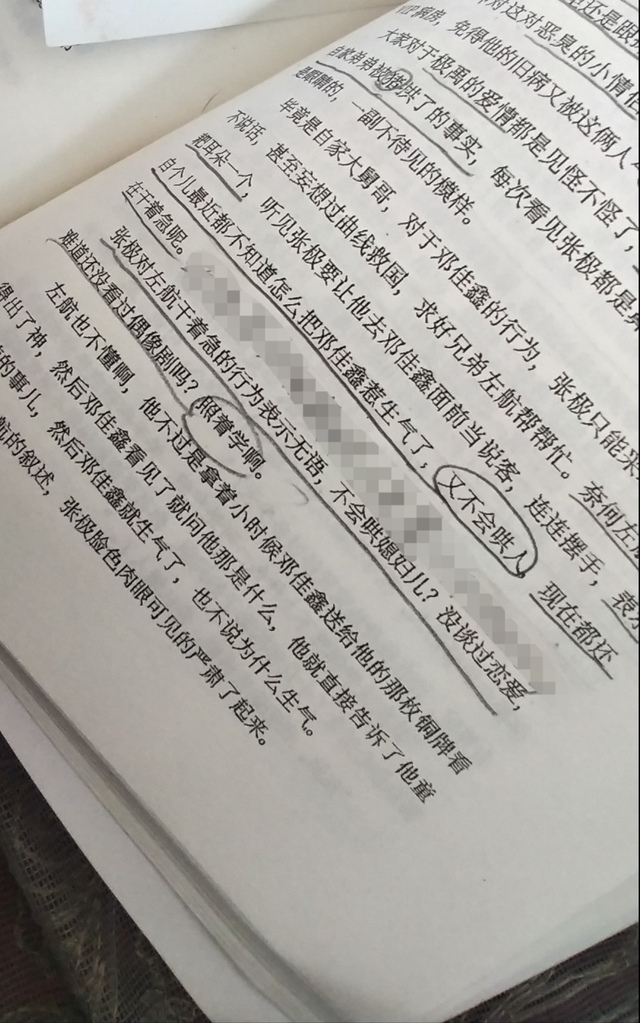 且还是既
对这对恶臭的小情侣
病房，免得他的旧病又被这俩人
大家对于极禹的爱情都是见怪不怪了，
自家弟弟被猪拱了的事实，每次看见张极都是
是眼睛的，一副不待见的模样。
毕竟是自家大舅哥，对于邓佳鑫的行为，张极只能采
不说话，甚至妄想过曲线救国，求好兄弟左航帮帮忙。奈何左
耙耳朵一个，听见张极要让他去邓佳鑫面前当说客，连连摆手，表示
自个儿最近都不知道怎么把邓佳鑫惹生气了，又不会哄人，现在都还
在干着急呢。
张极对左航干着急的行为表示无语，不会哄媳妇儿？没谈过恋爱，
难道还没看过偶像剧吗？照着学啊。
左航也不懂啊，他不过是拿着小时候邓佳鑫送给他的那枚铜牌看
得出了神，然后邓佳鑫看见了就问他那是什么，他就直接告诉了他童
的事儿，然后邓佳鑫就生气了，也不说为什么生气。
航的叙述，张极脸色肉眼可见的严肃了起来。